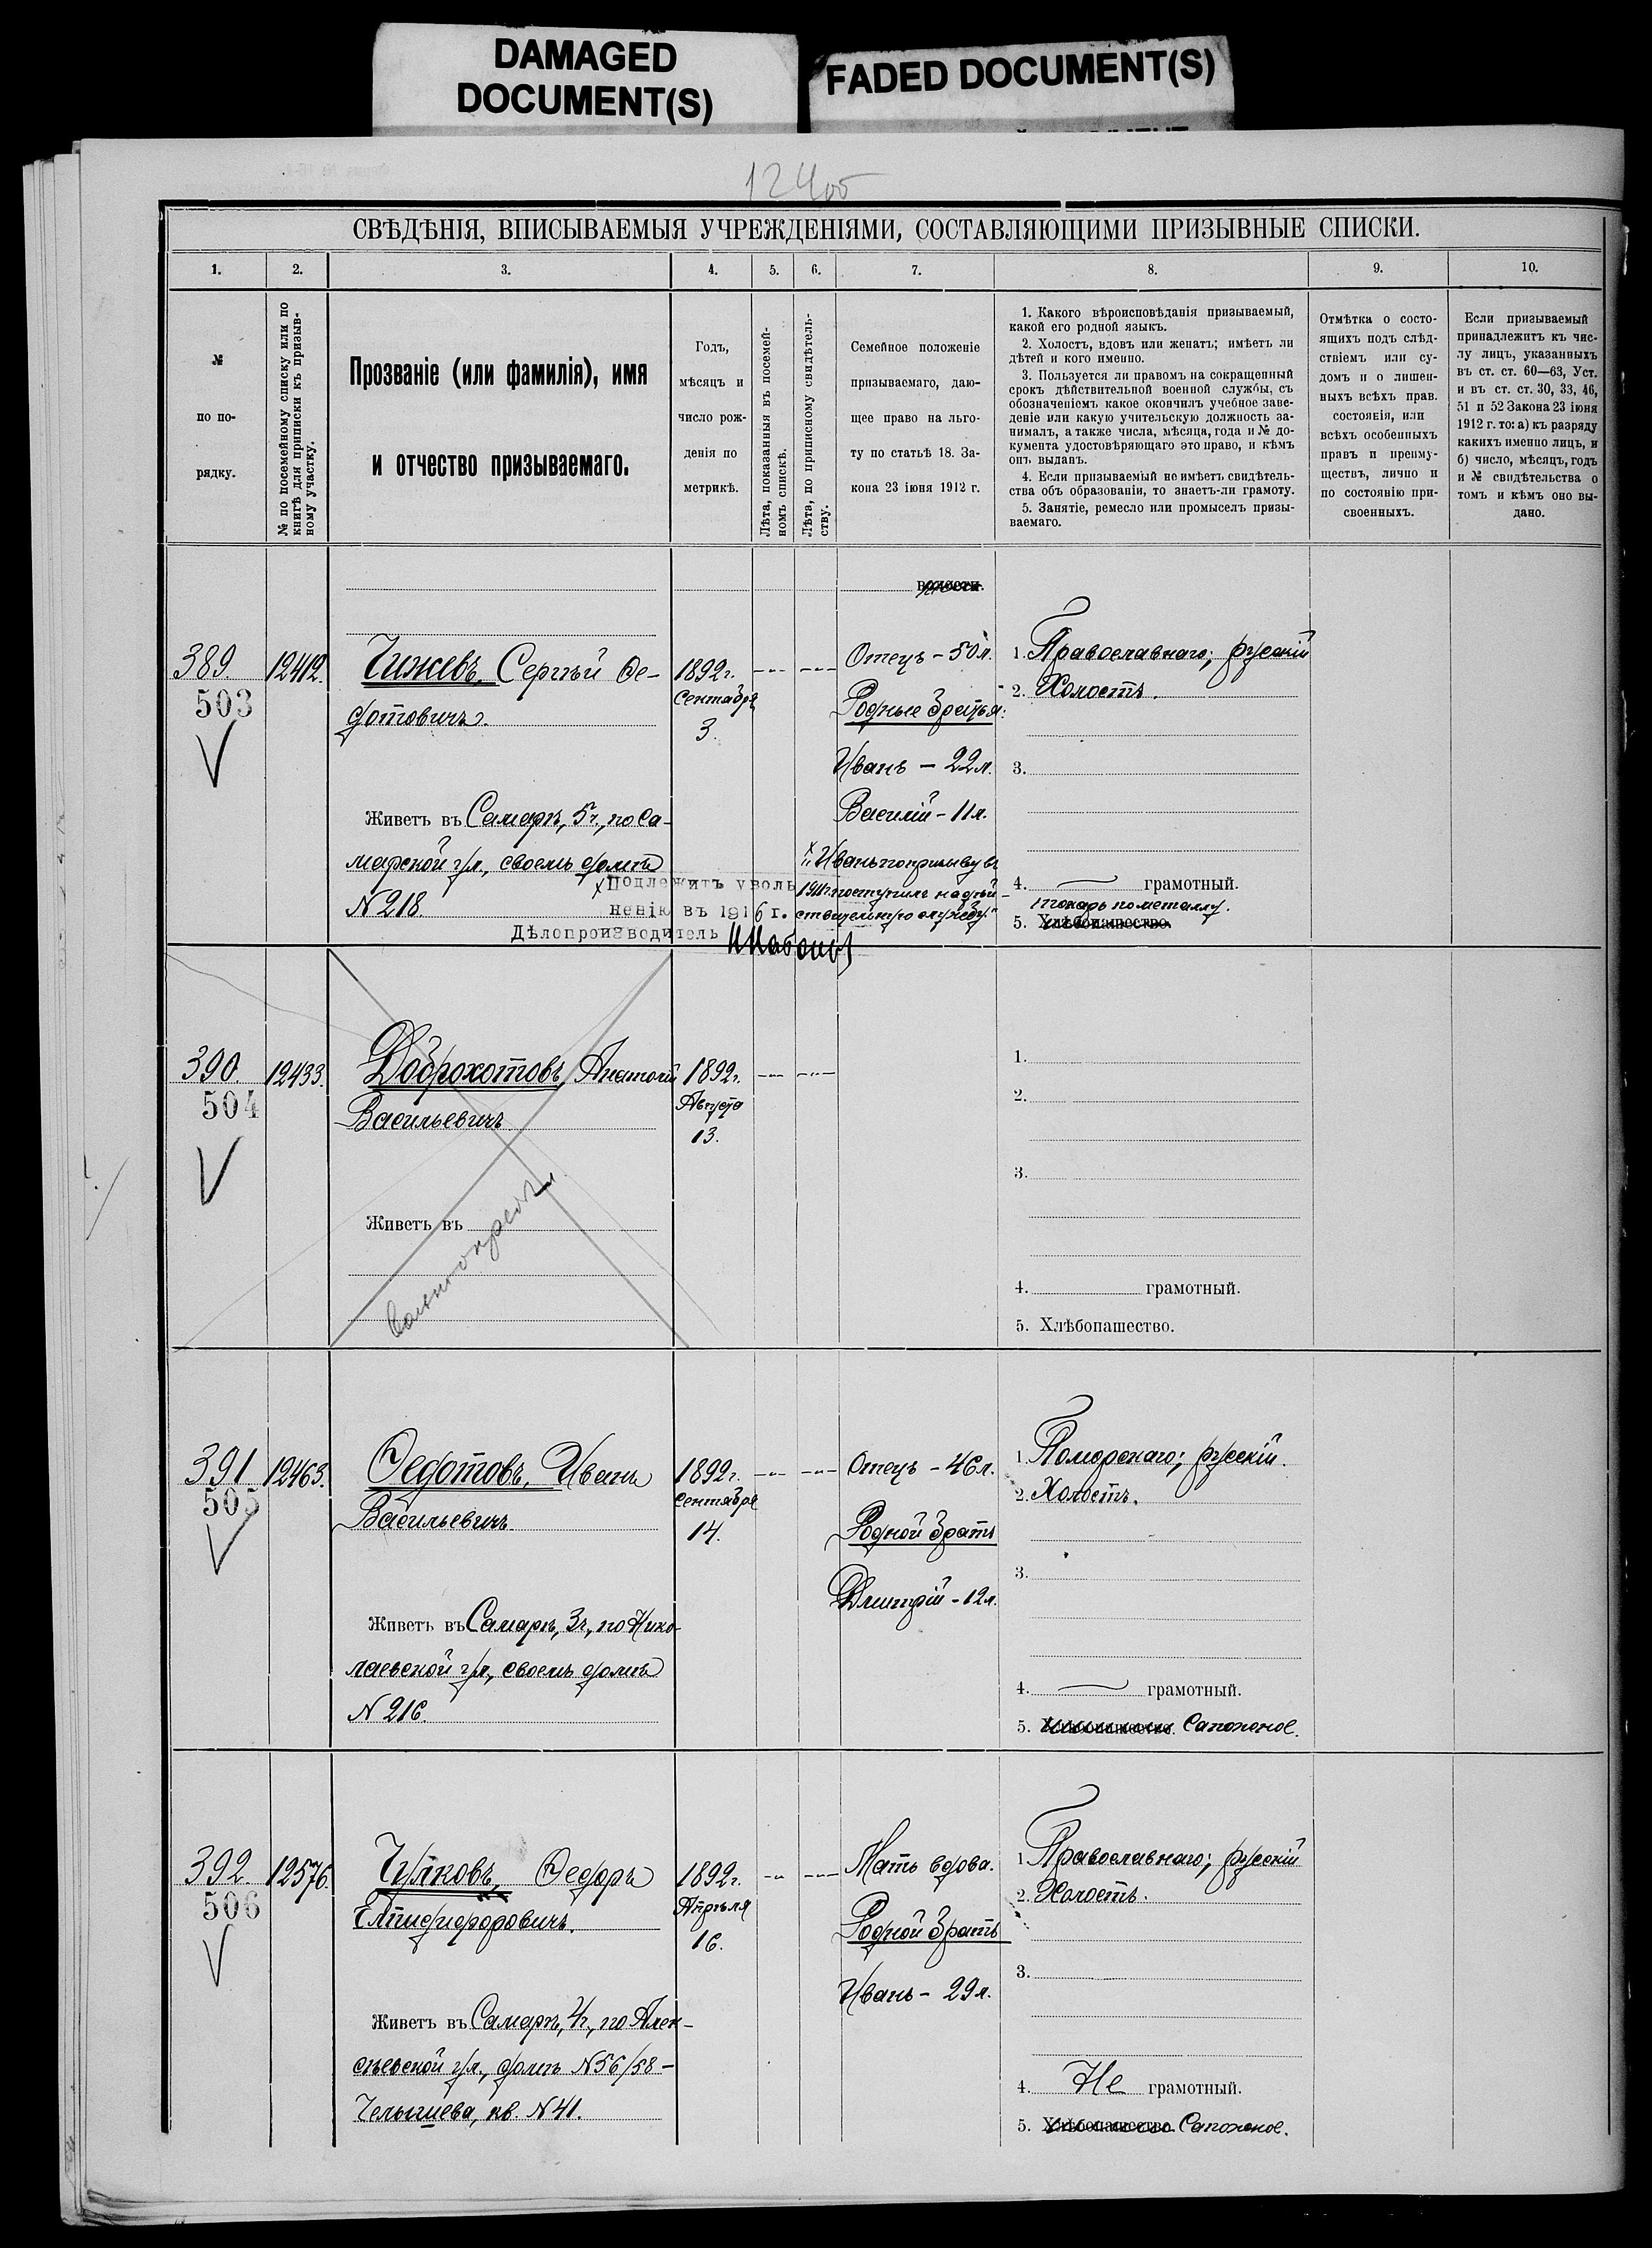 DAMAGED
DOCUMENT(S)
FADED DOCUMENT(S)
124об
СВѢДѢНІЯ, ВПИСЫВАЕМЫЯ УЧРЕЖДЕНІЯМИ, СОСТАВЛЯЮЩИМИ ПРИЗЫВНЫЕ СПИСКИ.
1.
2.
3.
4.
5.
6.
7.
8.
9.
10.
№
по по-
рядку.
№ по посемейному списку или по
книгѣ для приписки къ призыв-
ному участку.
Прозваніе (или фамилія), имя
и отчество призываемаго.
Годъ,
мѣсяцъ и
число рож-
денія по
метрикѣ.
Лѣта, показанныя въ посемей-
номъ спискѣ.
Лѣта, по приписному свидѣтель-
ству.
Семейное положеніе
призываемаго, даю-
щее право на льго-
ту по статьѣ 18. За-
кона 23 іюня 1912 г.
1. Какого вѣроисповѣданія призываемый,
какой его родной языкъ.
2. Холостъ, вдовъ или женатъ; имѣетъ ли
дѣтей и кого именно.
3. Пользуется ли правомъ на сокращенный
срокъ дѣйствительной военной службы, съ
обозначеніемъ какое окончилъ учебное заве-
деніе или какую учительскую должность за-
нималъ, а также числа, мѣсяца, года и № до-
кумента удостовѣряющаго это право, и кѣмъ
онъ выданъ.
4. Если призываемый не имѣетъ свидѣтель-
ства объ образованіи, то знаетъ-ли грамоту.
5. Занятіе, ремесло или промыселъ призы-
ваемаго.
Отмѣтка о состо-
ящихъ подъ слѣд-
ствіемъ или су-
домъ и о лишен-
ныхъ всѣхъ прав.
состоянія, или
всѣхъ особенныхъ
правъ и преиму-
ществъ, лично и
по состоянію при-
своенныхъ.
Если призываемый
принадлежитъ къ чис-
лу лицъ, указанныхъ
въ ст. ст. 60—63, Уст.
и въ ст. ст. 30, 33, 46,
51 и 52 Закона 23 іюня
1912 г. то: а) къ разряду
какихъ именно лицъ, и
б) число, мѣсяцъ, годъ
и № свидѣтельства о
томъ и кѣмъ оно вы-
дано.
волости.
389.
503
12412.
Чижевъ, Сергѣй Ѳе-
дотовичъ.
Живетъ въ Самарѣ, 5ч., по Са-
марской ул., своемъ домѣ
N 218.
1892г.
Сентября
3.
Отецъ - 50л.
Родные братья:
Иванъ - 22л.
Василій - 11л.
х „Иванъ по призыву въ
1911г. поступилъ на дѣй-
ствительную службу."
х Подлежитъ уволь
ненію въ 1916 г.
Дѣлопроизводитель
1. Православнаго; русскій
2. Холостъ.
3.
4. грамотный.
токарь по металлу.
5. Хлѣбопашество.
390.
504
12433.
Доброхотовъ, Анатолій
Васильевичъ
Живетъ въ
Вольноопредѣл.
1892г.
Августа
13.
1.
2.
3.
4. грамотный.
5. Хлѣбопашество.
391
505
12463.
Ѳедотовъ, Иванъ
Васильевичъ
Живетъ въ Самарѣ, 3ч., по Нико-
лаевской ул., своемъ домѣ
N 216.
1892г.
Сентября
14.
Отецъ - 46л.
Родной братъ
Дмитрій - 12л.
1. Поморскаго; русскій.
2. Холостъ.
3.
4. грамотный.
5. Хлѣбопашество. Сапожное.
392
506
12576.
Чулковъ, Ѳедоръ
Елпидифоровичъ.
Живетъ въ Самарѣ, 4ч., по Алек-
сѣевской ул., домъ N 56/58 -
Челышева, кв. N 41.
1892г.
Апрѣля
16.
Мать вдова.
Родной братъ
Иванъ - 29л.
1. Православнаго; русскій
2. Холостъ.
3.
4. Не грамотный.
5. Хлѣбопашество. Сапожное.